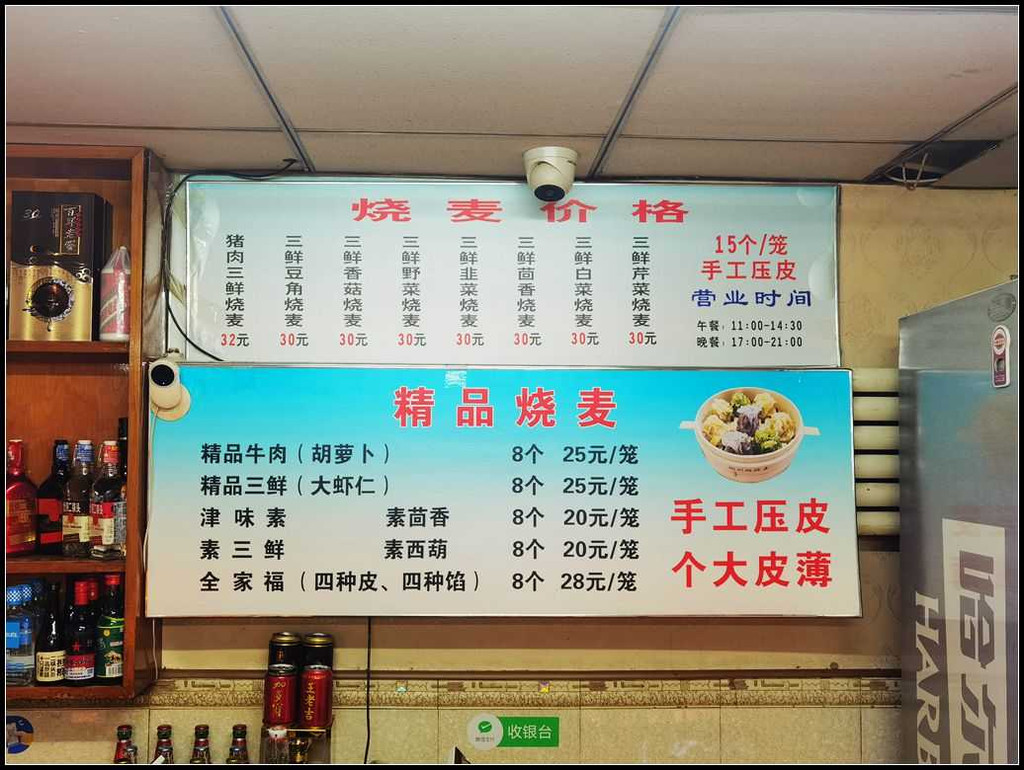 烧麦价格
猪肉三鲜烧麦
32元
三鲜豆角烧麦
30元
三鲜香菇烧麦
30元
三鲜野菜烧麦
30元
三鲜韭菜烧麦
30元
三鲜茴香烧麦
30元
三鲜白菜烧麦
30元
三鲜芹菜烧麦
30元
15个/笼
手工压皮
营业时间
午餐：11:00-14:30
晚餐：17:00-21:00
精品烧麦
精品牛肉（胡萝卜） 8个 25元/笼
精品三鲜（大虾仁） 8个 25元/笼
津味素 素茴香 8个 20元/笼
素三鲜 素西葫 8个 20元/笼
全家福（四种皮、四种馅） 8个 28元/笼
手工压皮
个大皮薄
百年老窖
30
王老吉
收银台
哈尔
HARB